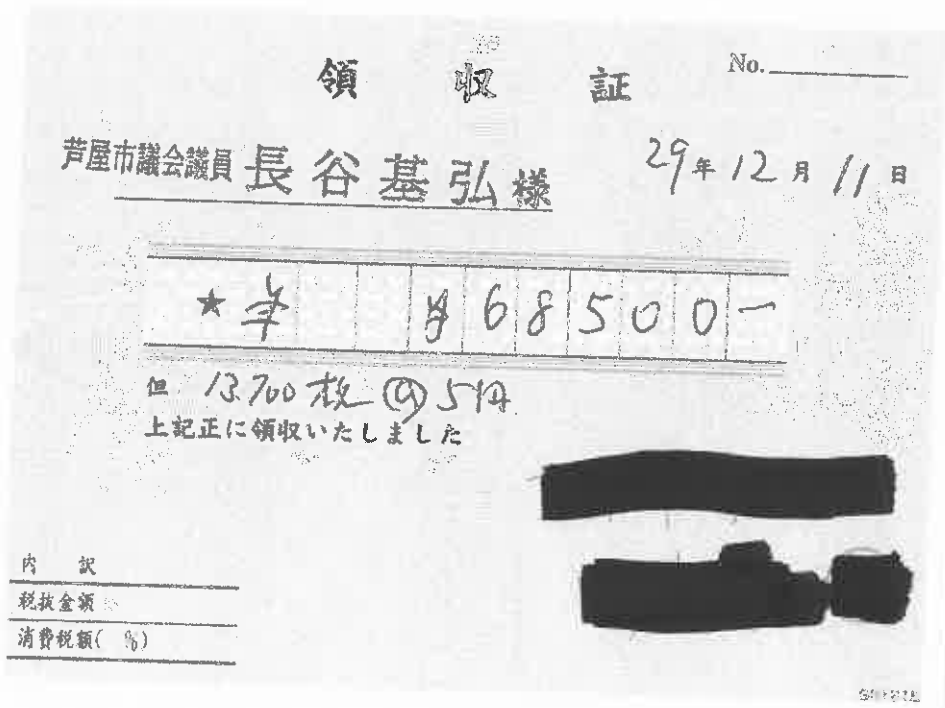 領収証
No.
芦屋市議会議員 長谷基弘様
29年12月11日
★ ¥68500-
但 13.700枚 @5円
上記正に領収いたしました
内訳
税抜金額
消費税額( %)